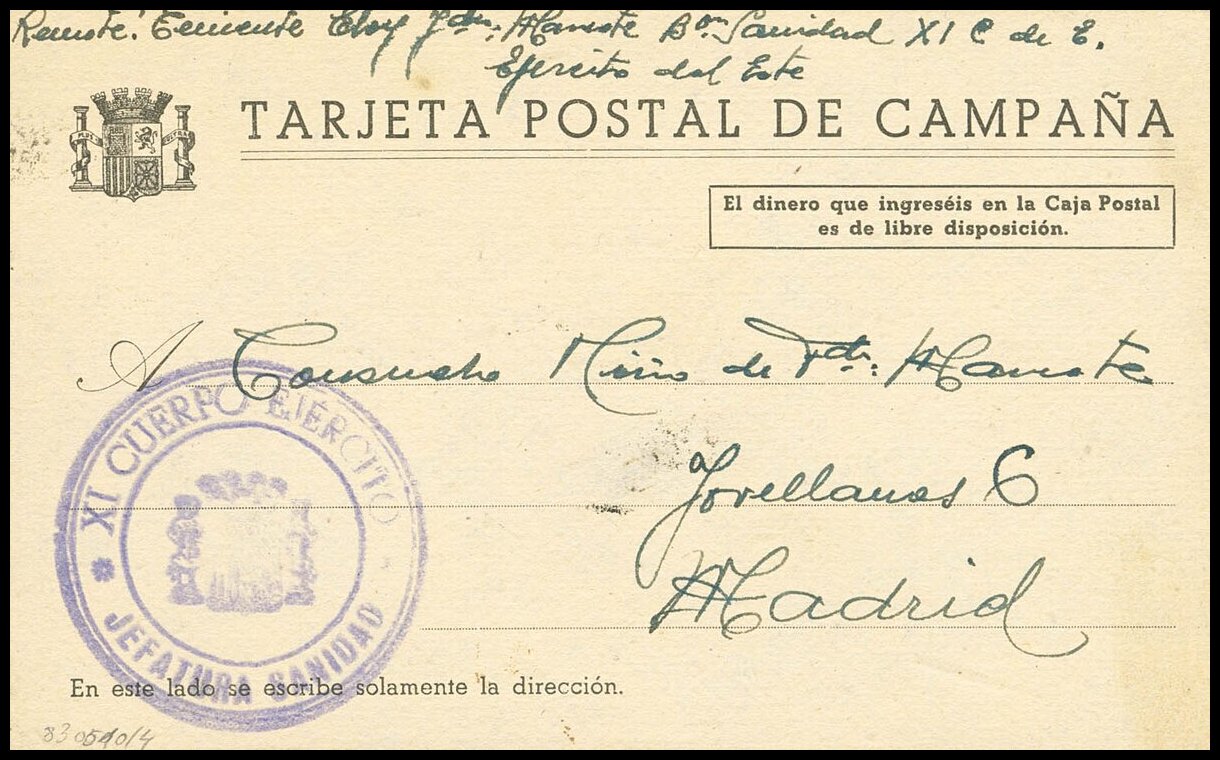 Remite: Teniente Eloy Fdez. Mamote Bon Sanidad XI C de E.
Ejercito del Este
TARJETA POSTAL DE CAMPAÑA
El dinero que ingreséis en la Caja Postal
es de libre disposición.
A Consuelo Miño de Fdez. Mamote
Jovellanos 6
Madrid
XI CUERPO EJÉRCITO
JEFATURA SANIDAD
En este lado se escribe solamente la dirección.